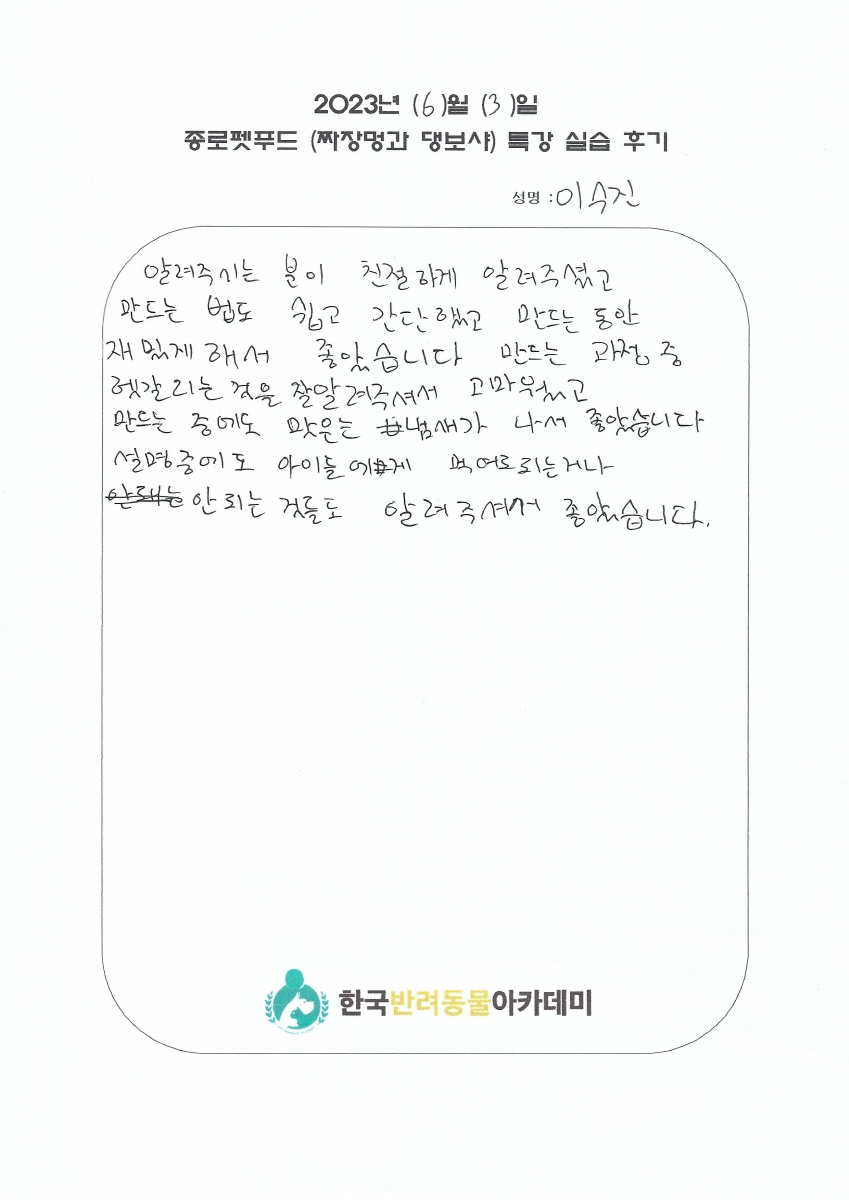 2023년 (6)월 (3)일
종로펫푸드 (짜장멍과 댕보샤) 특강 실습 후기
성명 : 이수진
알려주시는 분이 친절하게 알려주셨고
만드는 법도 쉽고 간단했고 만드는 동안
재밌게 해서 좋았습니다 만드는 과정 중
헷갈리는 것을 잘알려주셔서 고마웠고
만드는 중에도 맛있는 냄새가 나서 좋았습니다
설명중에도 아이들에게 먹여도 되는거나
안되는 것들도 알려주셔서 좋았습니다.
한국반려동물아카데미